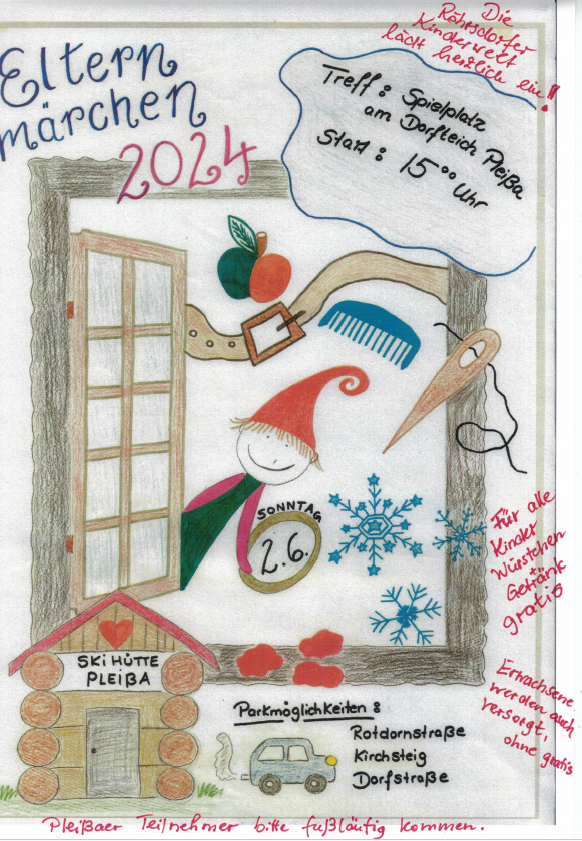 Die
Röhrsdorfer
Kinderwelt
lädt herzlich ein!!
Eltern
märchen
2024
Treff: Spielplatz
am Dorfteich Pleißa
Start: 15⁰⁰ Uhr
SONNTAG
2.6.
Für alle
Kinder
Würstchen
+
Getränk
gratis
SKiHÜTTE
PLEIßA
Erwachsene
werden auch
versorgt,
ohne gratis
Parkmöglichkeiten:
Rotdornstraße
Kirchsteig
Dorfstraße
Pleißaer Teilnehmer bitte fußläufig kommen.